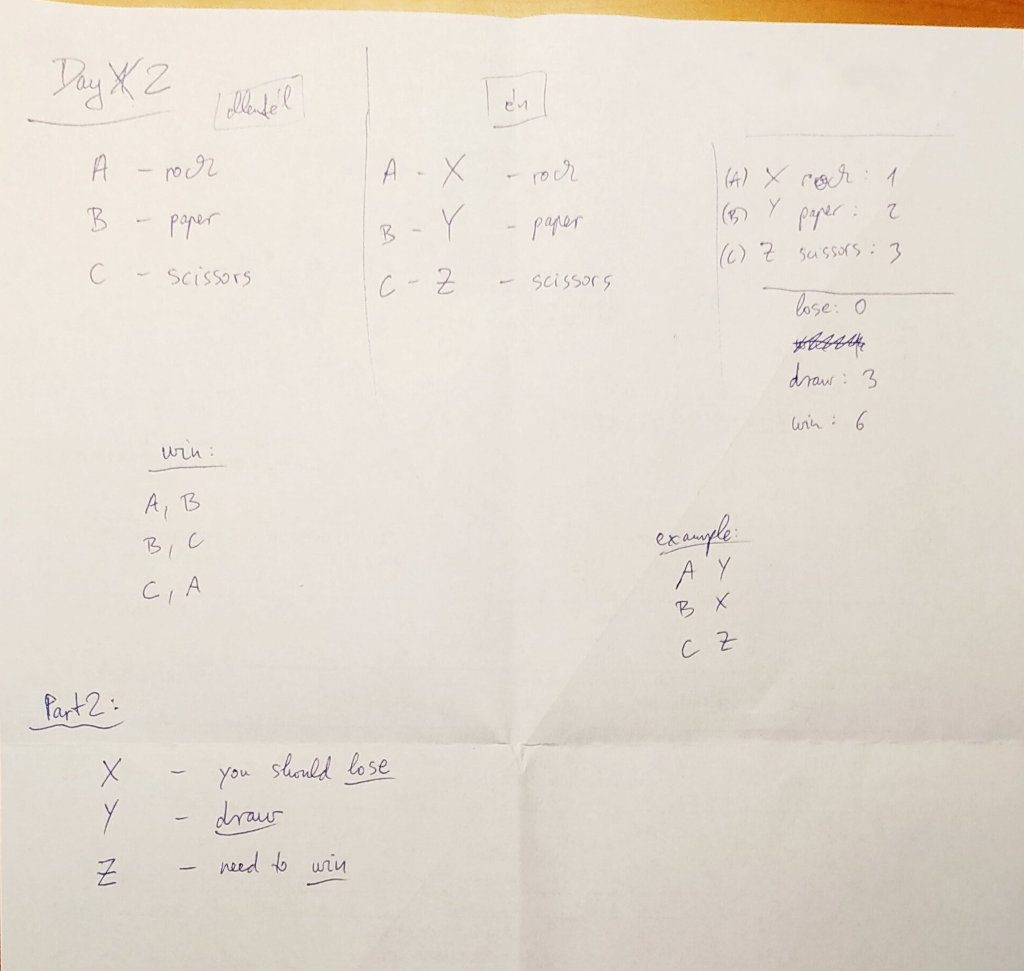 Day 2
ellenfél
A - rock
B - paper
C - scissors
én
A - X - rock
B - Y - paper
C - Z - scissors
(A) X rock: 1
(B) Y paper: 2
(C) Z scissors: 3
lose: 0
draw: 3
win: 6
win:
A, B
B, C
C, A
example:
A Y
B X
C Z
Part2:
X - you should lose
Y - draw
Z - need to win